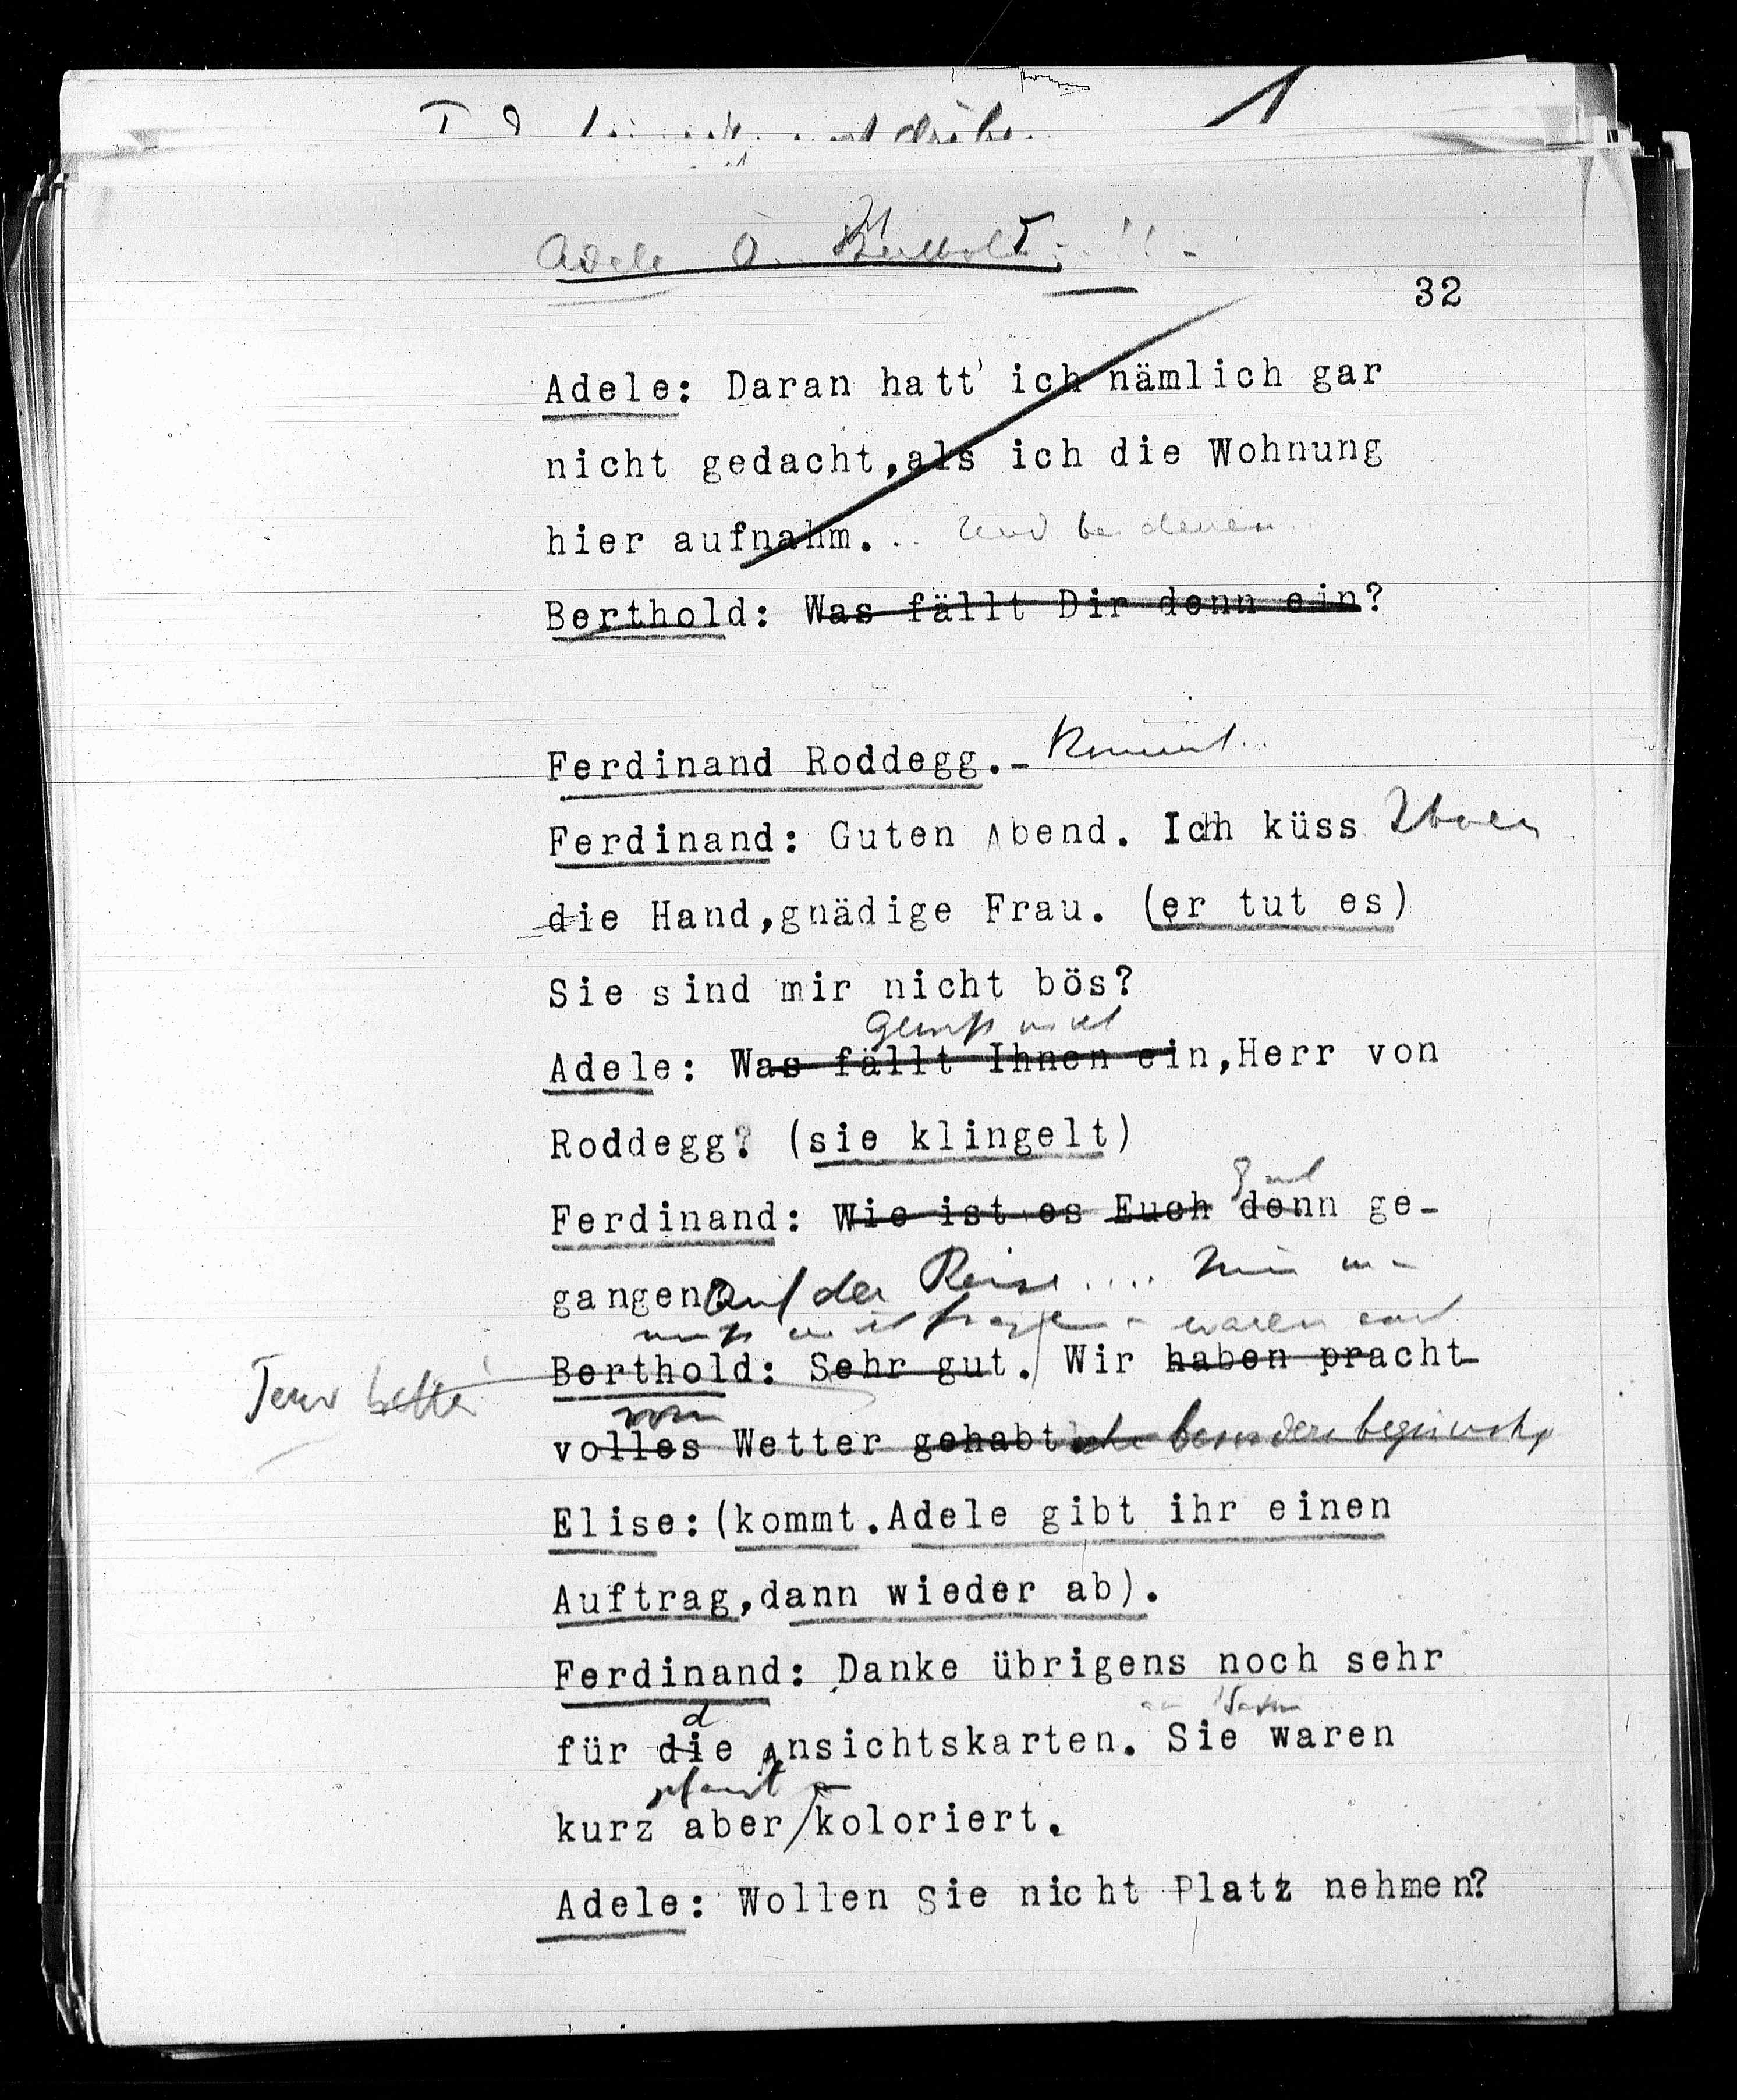 Adele
32
Adele: Daran hatt' ich nämlich gar
nicht gedacht,als ich die Wohnung
hier aufnahm... Und
Berthold: Was fällt Dir denn ein?
Ferdinand Roddegg.- Kommt..
Ferdinand: Guten Abend. Ich küss Ihnen
die Hand,gnädige Frau. (er tut es)
Sie sind mir nicht bös?
Gewiss nicht
Adele: Was fällt Ihnen ein,Herr von
Roddegg? (sie klingelt)
Ferdinand: Wie ist es Euch denn ge-
gangen? Auf der Reise....
Berthold: Sehr gut. Wir haben pracht-
vom
volles Wetter gehabt besonders begünstigt
Elise:(kommt.Adele gibt ihr einen
Auftrag,dann wieder ab).
Ferdinand: Danke übrigens noch sehr
für die Ansichtskarten. Sie waren
kurz aber koloriert.
Adele: Wollen Sie nicht Platz nehmen?